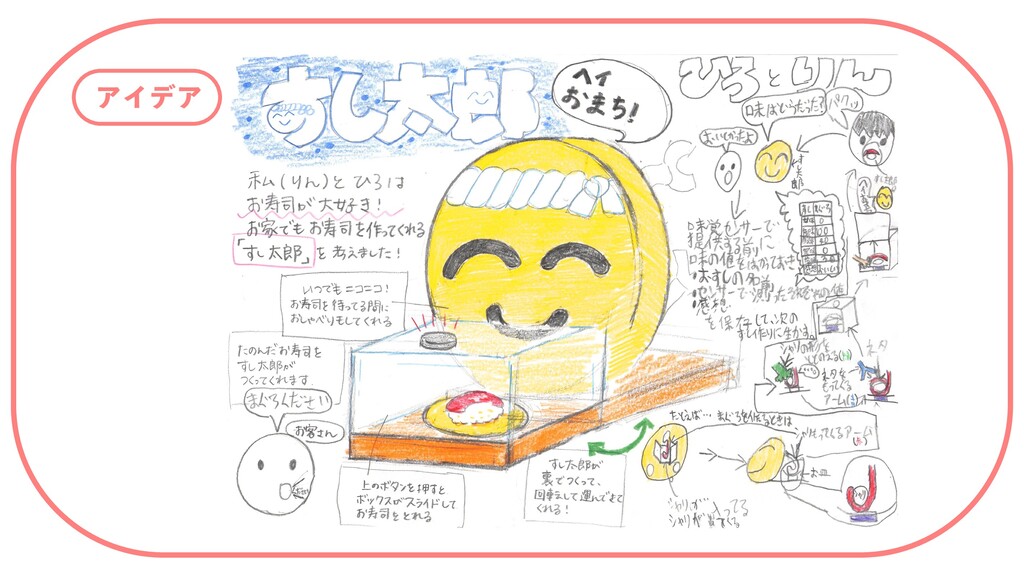 アイデア
すし太郎
ヘイ
おまち!
ひろとりん
私(りん)とひろは
お寿司が大好き!
お家でもお寿司を作ってくれる
「すし太郎」を考えました!
いつでもニコニコ!
お寿司を待ってる間に
おしゃべりもしてくれる
たのんだお寿司を
すし太郎が
つくってくれます
まぐろください
お客さん
上のボタンを押すと
ボックスがスライドして
お寿司をとれる
すし太郎が
裏でつくって、
回転して運んできて
くれる!
味はどうだった?
パクッ
おいしかったよ
すし太郎
味覚センサーで
提供する前に
味の値をはかっておき
・おすしの名前
・センサーで測った
・感想
を保存して、次の
すし作りに生かす。
シャリの形を
ととのえる
ネタ
ネタを
もってくる
アーム
たとえば… まぐろを作るときは
アーム
お皿
シャリ
シャリが入ってる
シャリが